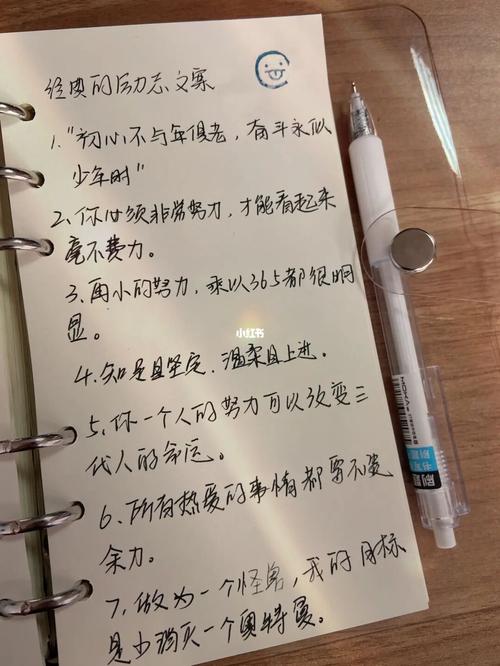 经典的励志文案
1."初心不与年俱老，奋斗永似
少年时"
2、你必须非常努力，才能看起来
毫不费力。
3、再小的努力，乘以365都很明
显。
小红书
4、知足且坚定，温柔且上进。
5、你一个人的努力可以改变三
代人的命运。
6、所有热爱的事情都要不遗
余力。
7、做为一个怪兽，我的目标
是少消灭一个奥特曼。
刷题